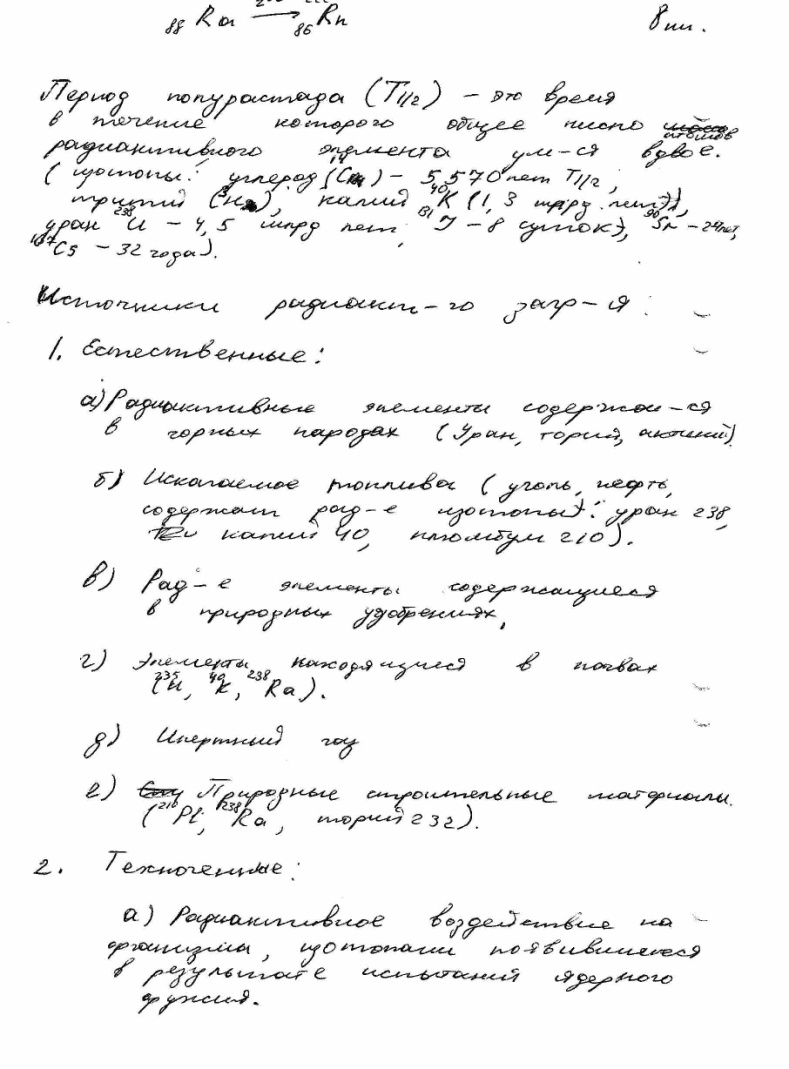 ₈₈Ra → ₈₆Rn 8 пи.
Период полурастада (T1/2) – это время
в течение которого общее число атомов
радиактивного элемента ум-ся вдвое.
(изотопы: углерод (¹⁴C) – 5,570 лет T1/2,
тритий (³H), калий ⁴⁰K (1,3 млрд лет),
уран ²³⁸U – 4,5 млрд лет, ¹³¹J – 8 суток), ⁹⁰Sr – 29 лет,
¹³⁷Cs – 32 года).
Источники радиакт-го загр-я:
1. Естественные:
а) Радиактивные элементы содержащ-ся
в горных народах (Уран, торий, актиний)
б) Ископаемое топлива (уголь, нефть,
содержат рад-е изотопы): уран 238,
калий 40, плюмбум 210).
в) Рад-е элементы содержащиеся
в природных удобрениях,
г) Элементы находящиеся в почвах
(²³⁵U, ⁴⁰K, ²³⁸Ra).
д) Инертный газ
е) Природные строительные материалы.
(²¹⁰Pb, ²³⁸Ra, торий 232).
2. Техногенные:
а) Радиактивное воздействие на
организмы, изотопами появившиеся
в результате испытаний ядерного
оружия.